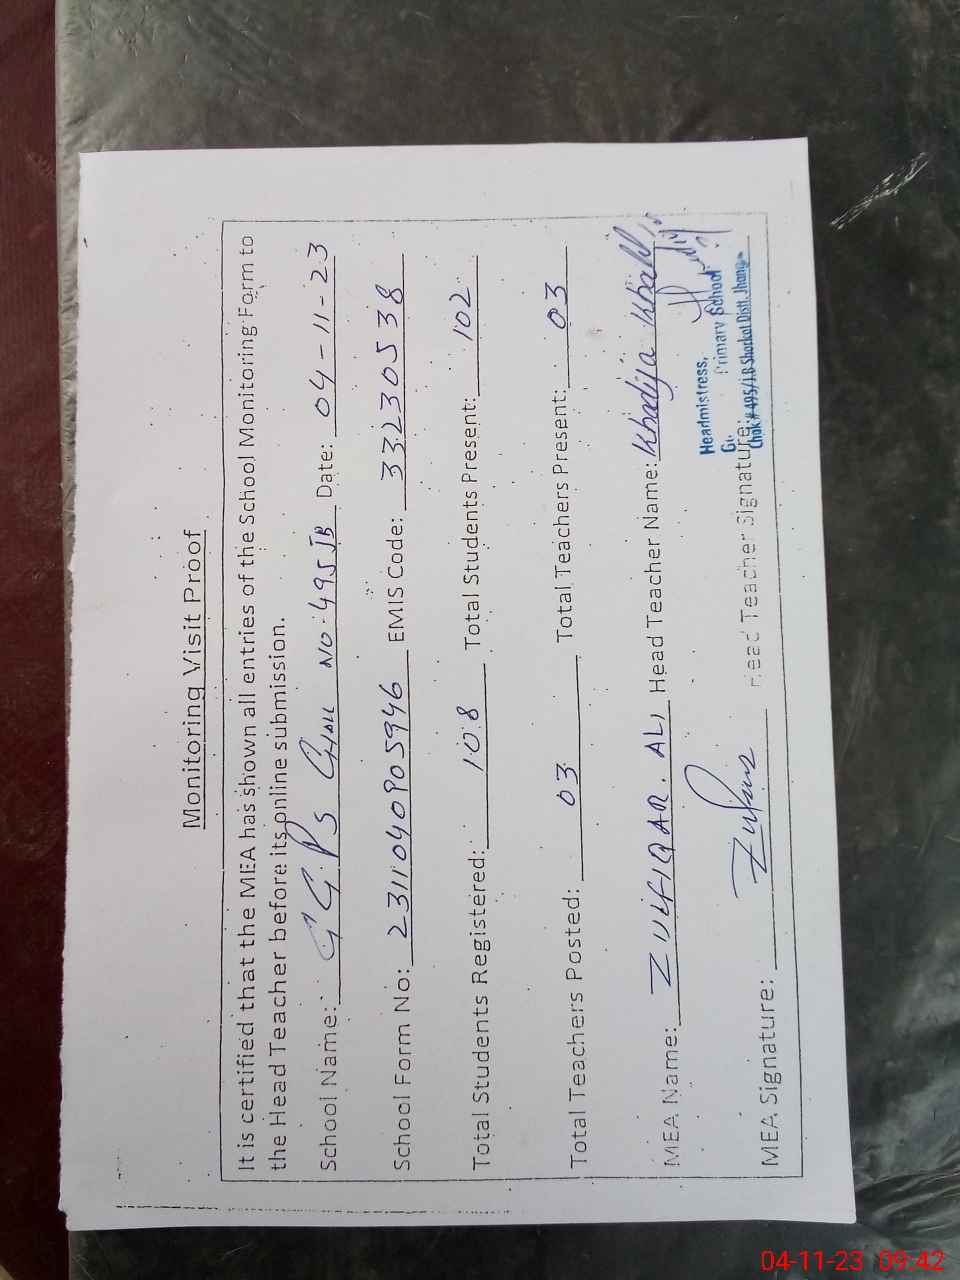 Monitoring Visit Proof
It is certified that the MEA has shown all entries of the School Monitoring Form to
the Head Teacher before its online submission.
School Name: GGPS Chak NO-495 JB Date: 04-11-23
School Form No: 23110409059946 EMIS Code: 33230538
Total Students Registered: 108 Total Students Present: 102
Total Teachers Posted: 03 Total Teachers Present: 03
MEA Name: ZULFIQAR. ALI Head Teacher Name: Khadija
Headmistress,
Primary School
Chak # 495/J.B Shorkot Distt. Jhang
MEA Signature: Head Teacher Signature:
04-11-23 09:42